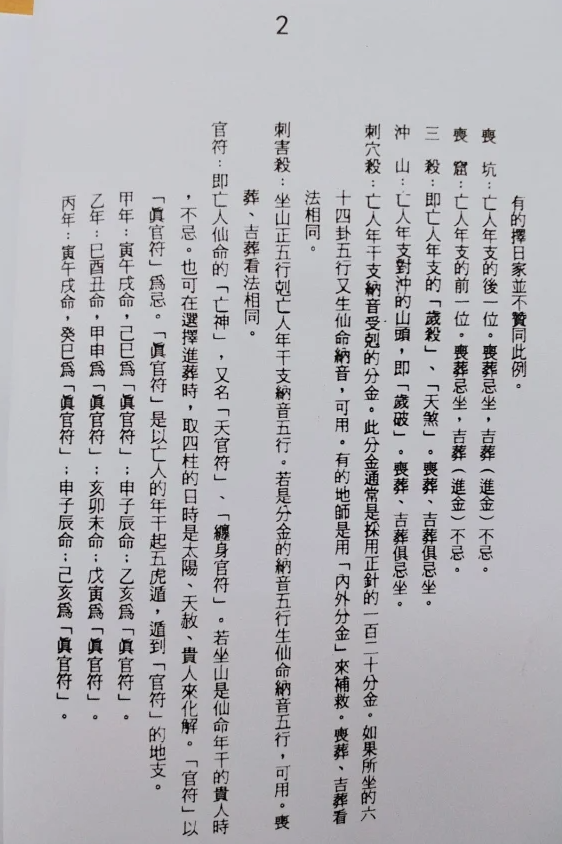 2
有的擇日家並不贊同此例。
喪　坑：亡人年支的後一位。喪葬忌坐，吉葬（進金）不忌。
喪　窟：亡人年支的前一位。喪葬忌坐，吉葬（進金）不忌。
三　殺：即亡人年支的「歲殺」、「天煞」。喪葬、吉葬俱忌坐。
沖　山：亡人年支對沖的山頭，即「歲破」。喪葬、吉葬俱忌坐。
刺穴殺：亡人年干支納音受剋的分金。此分金通常是採用正針的一百二十分金。如果所坐的六
十四卦五行又生仙命納音，可用。有的地師是用「內外分金」來補救。喪葬、吉葬看
法相同。
刺害殺：坐山正五行剋亡人年干支納音五行。若是分金的納音五行生仙命納音五行，可用。喪
葬、吉葬看法相同。
官符：即亡人仙命的「亡神」，又名「天官符」、「纏身官符」。若坐山是仙命年干的貴人時
，不忌。也可在選擇進葬時，取四柱的日時是太陽、天赦、貴人來化解。「官符」以
「眞官符」爲忌。「眞官符」是以亡人的年干起五虎遁，遁到「官符」的地支。
甲年：寅午戌命，己巳爲「眞官符」；申子辰命：乙亥爲「眞官符」。
乙年：巳酉丑命，甲申爲「眞官符」；亥卯未命：戊寅爲「眞官符」。
丙年：寅午戌命，癸巳爲「眞官符」；申子辰命：己亥爲「眞官符」。